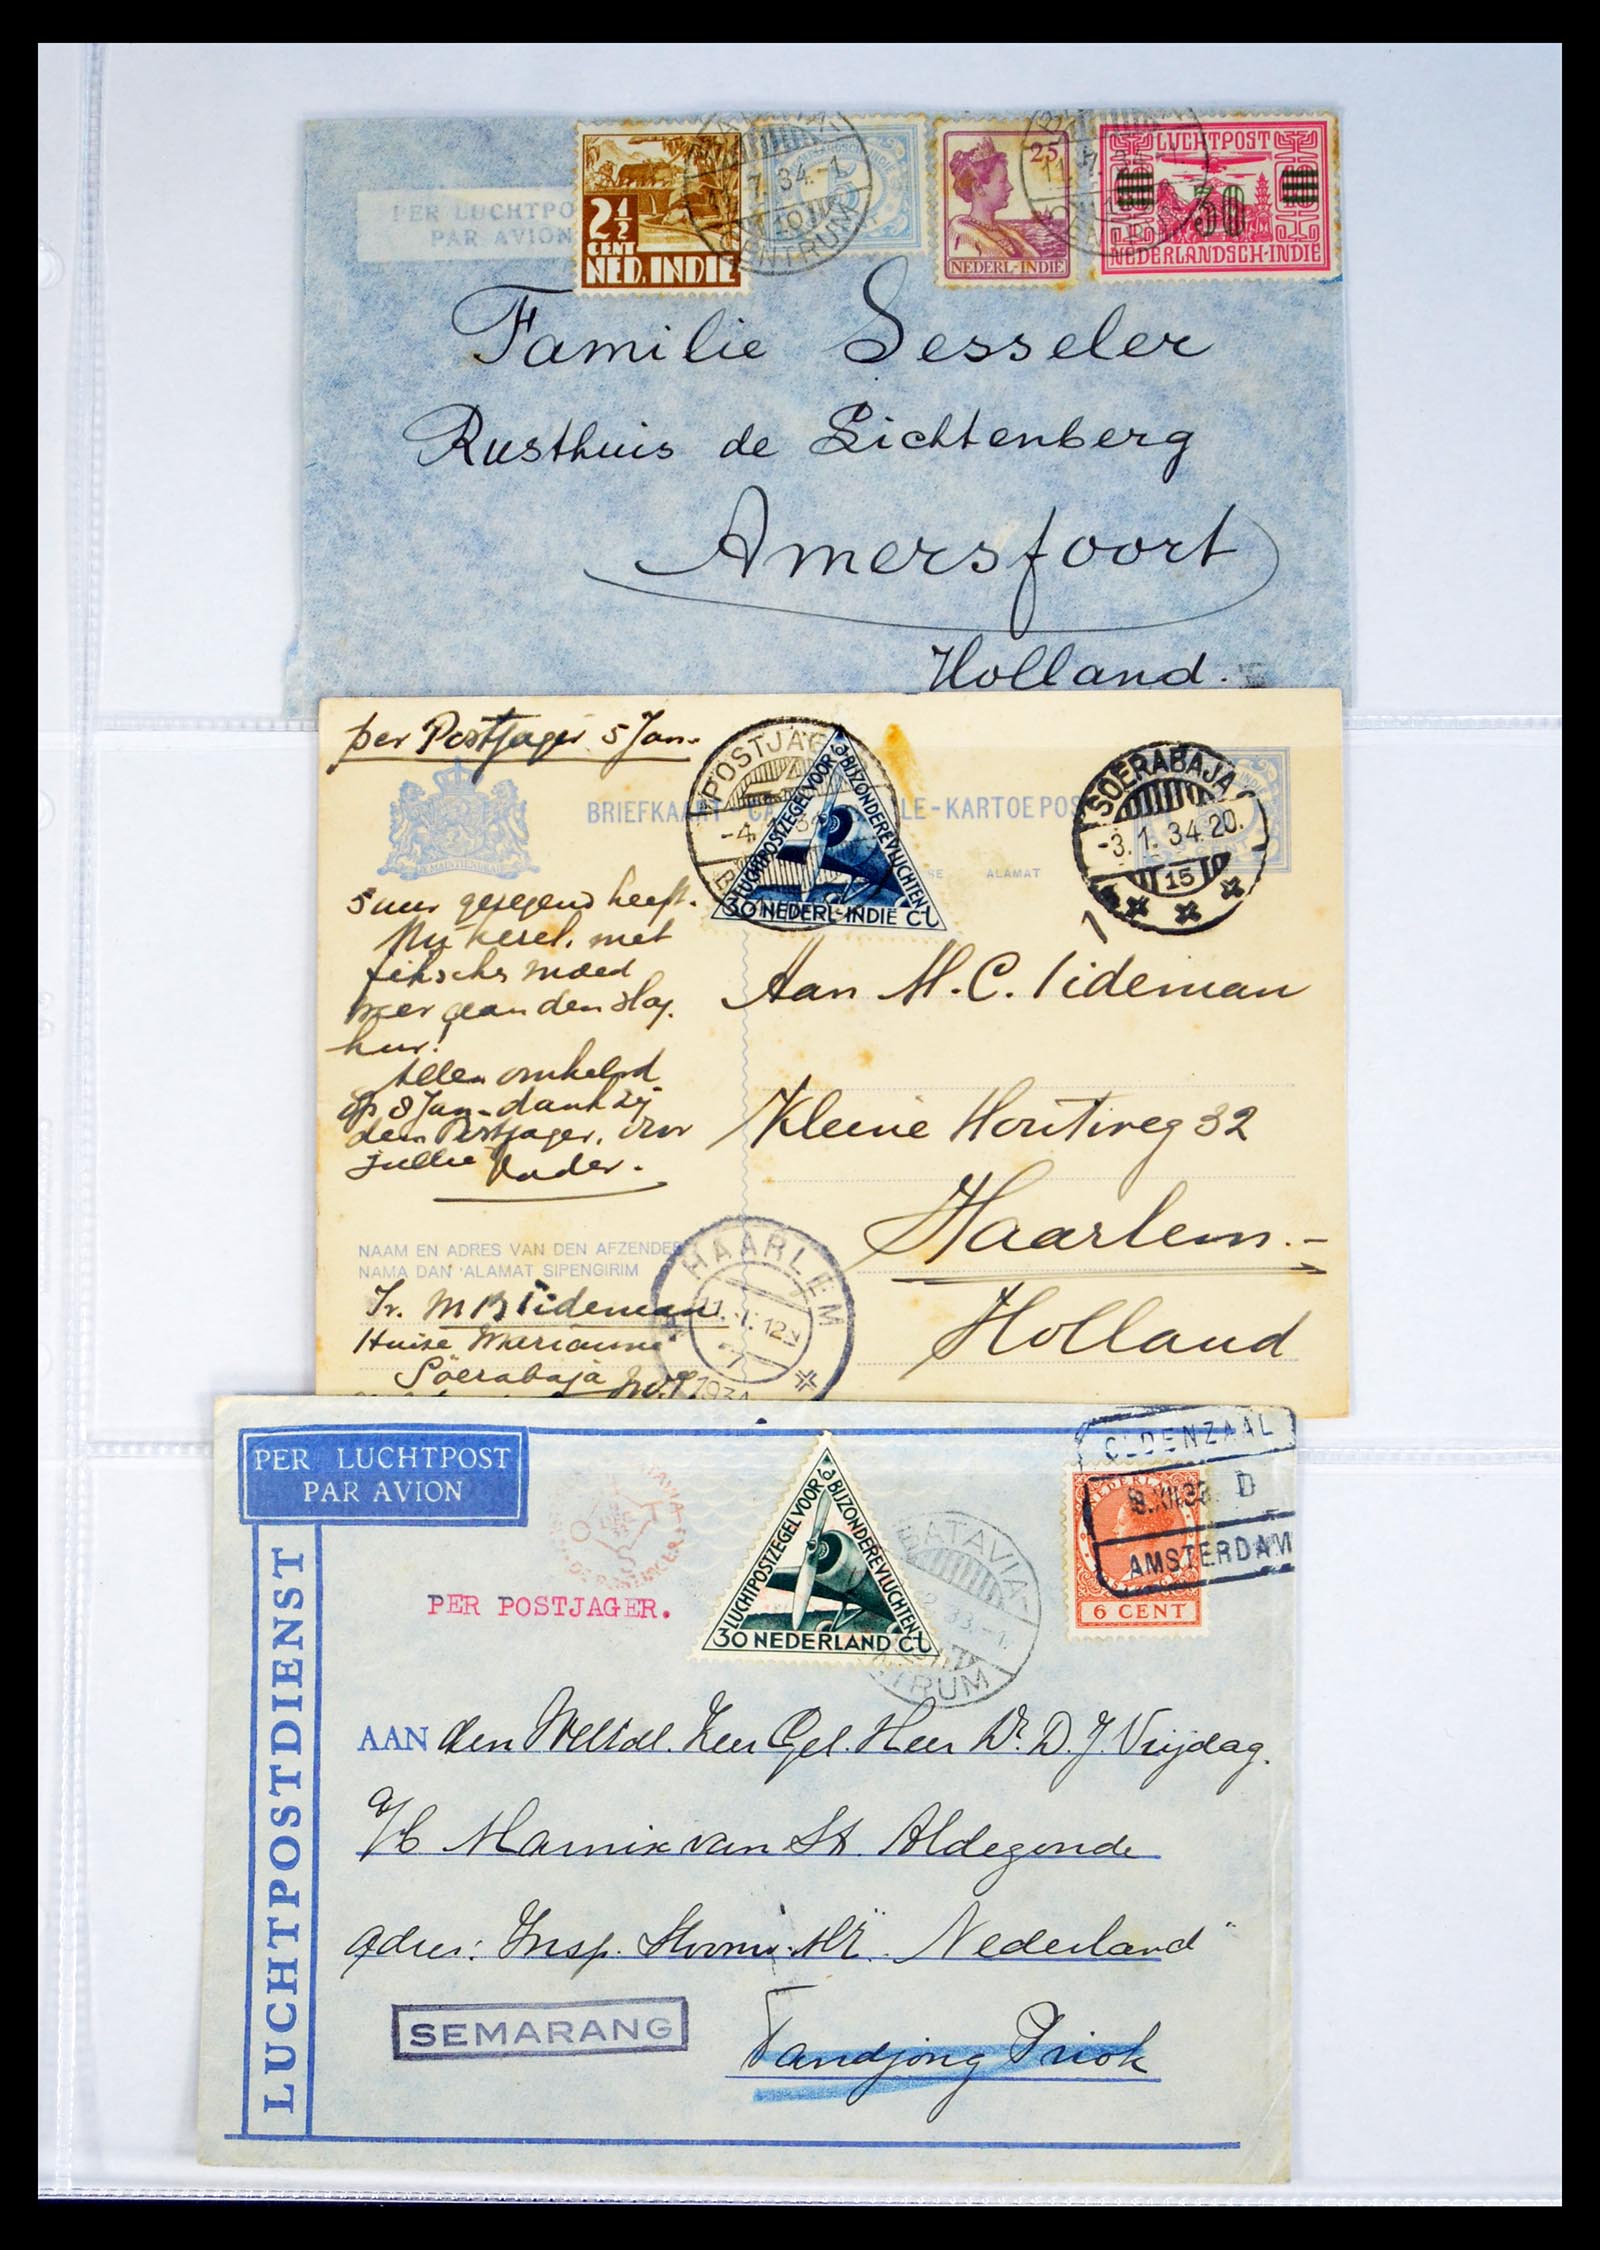 PER LUCHTPO
PAR AVION
2½
CENT
NED. INDIE
34.-1.
CENTRUM
25
NEDERL-INDIE
LUCHTPOST
30
NEDERLANDSCH-INDIE
Familie Sesseler
Rusthuis de Lichtenberg
Amersfoort
Holland.
per Postjager 5 Jan.
BRIEFKAART
LE-KARTOEPOS
ALAMAT
POSTJAG
LUCHTPOSTZEGEL VOOR BIJZONDERE VLUCHTEN
30 NEDERL-INDIË Ct
SOERABAJA
-3.1.34.20.
15
5 uur gezegend heeft.
met
moed
weer gaan den slag.
Allen omhelsd
op 8 Jan. dank zij
den Postjager, door
jullie Vader.
Aan M.C. Tideman
Kleine Houtweg 32
Haarlem.-
Holland
NAAM EN ADRES VAN DEN AFZENDER
NAMA DAN ALAMAT SIPENGIRIM
HAARLEM
1934
Ir. M B Tideman
Huize Marianne
Soerabaja
PER LUCHTPOST
PAR AVION
LUCHTPOSTDIENST
PER POSTJAGER.
LUCHTPOSTZEGEL VOOR BIJZONDERE VLUCHTEN
30 NEDERLAND Ct
BATAVIA-
33.-1.
TRUM
OLDENZAAL
D
AMSTERDAM
6 CENT
AAN den Weledl. Zeer Gel. Heer Dr. D. J. Vrijdag.
a/b Marnix van St. Aldegonde
adres: Insp. Stoomv. Mij. Nederland"
SEMARANG
Tandjong Priok